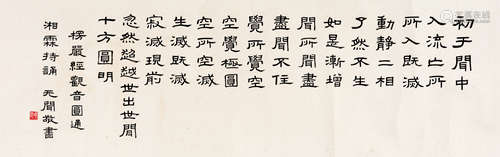 初于聞中
入流亡所
所入既滅
動靜二相
了然不生
如是漸增
聞所聞盡
盡聞不住
覺所覺空
空覺極圓
空所空滅
生滅既滅
寂滅現前
忽然超越世出世間
十方圓明
楞嚴經觀音圓通
湘霖持誦 敬書